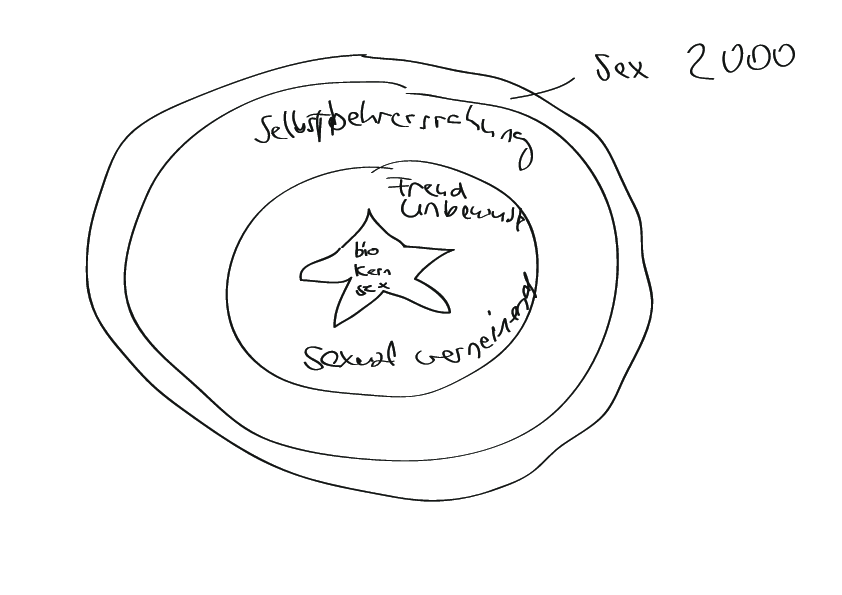 Sex 2000
Selbstbeherrschung
Freud
Unbewusst
bio
Kern
sex
Sexual verneinend